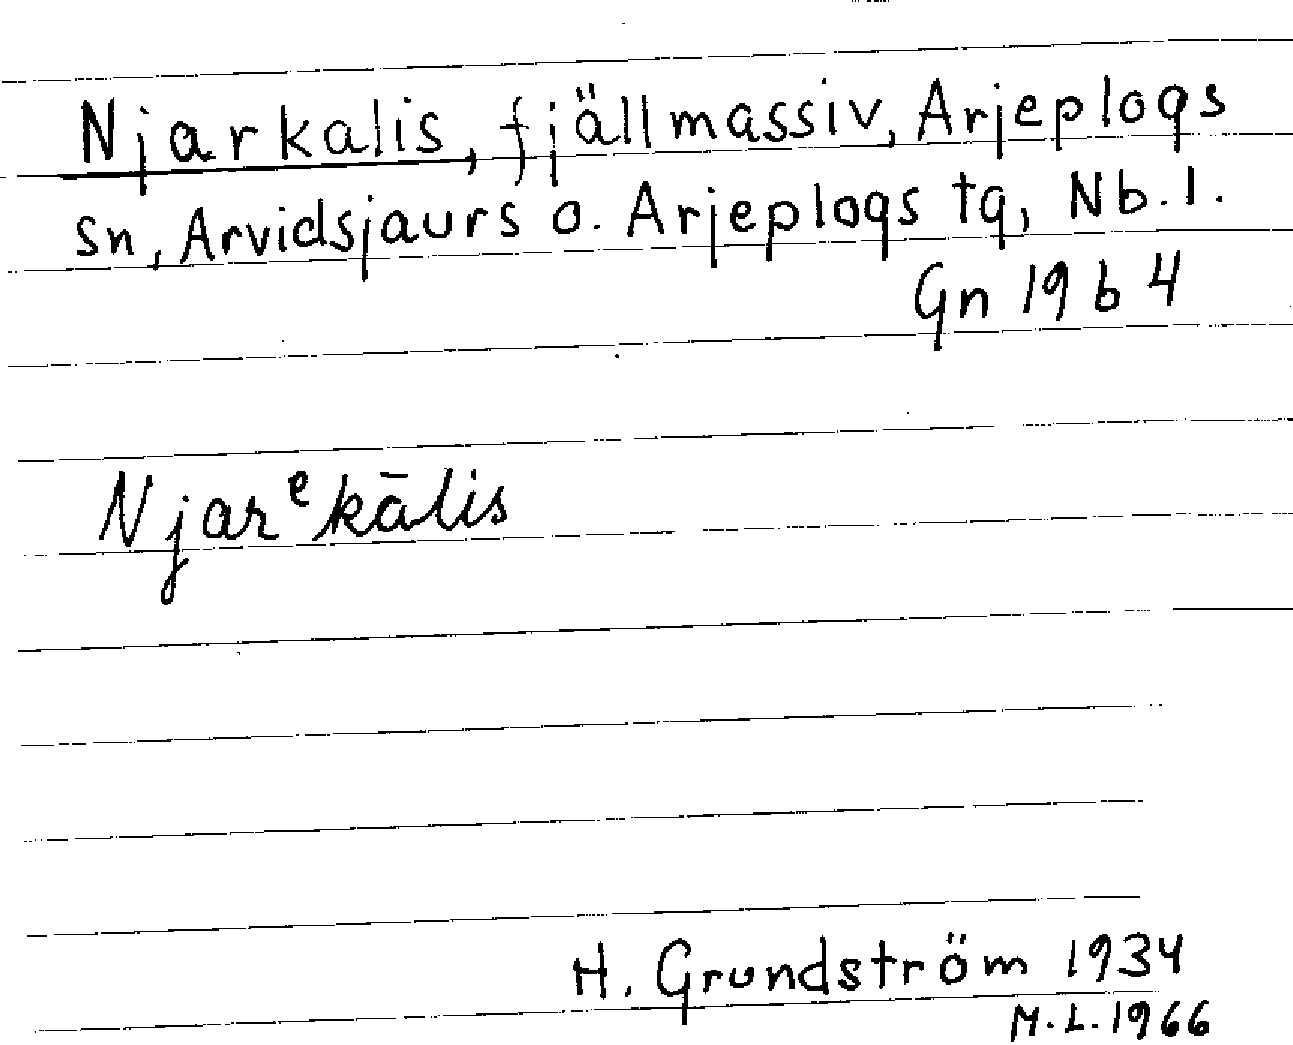 Njarkalis, fjällmassiv, Arjeplogs
sn, Arvidsjaurs o. Arjeplogs tg, Nb. l.
Gn 19 b 4
Njarᵉkālis
H. Grundström 1934
M. L. 1966